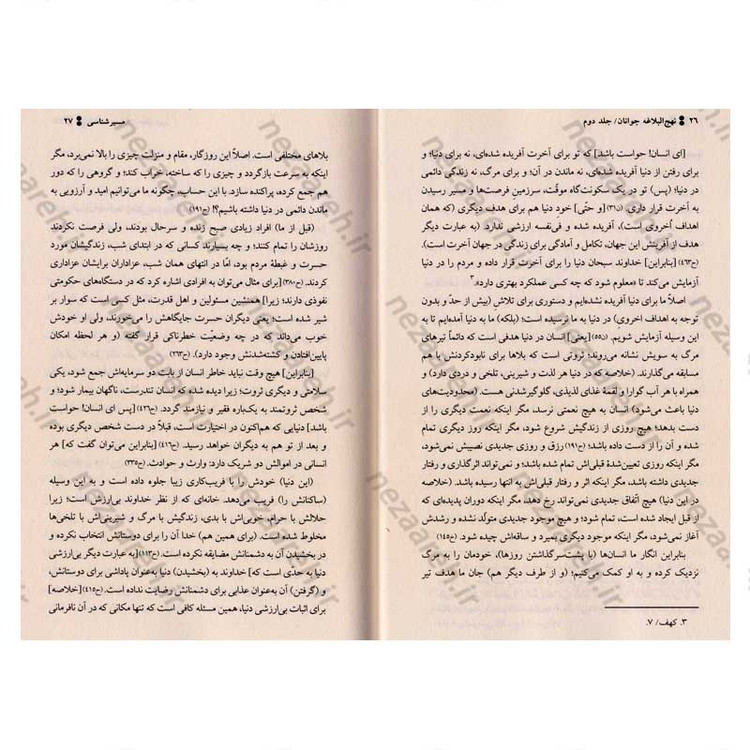 ۲۶ نهج‌البلاغه جوانان/ جلد دوم
[ای انسان! حواست باشد] که تو برای آخرت آفریده شده‌ای، نه برای دنیا؛ و
برای رفتن از دنیا آفریده شده‌ای، نه ماندن در آن؛ و برای مرگ، نه زندگی دائمی
در دنیا؛ (پس) تو در یک سکونت‌گاه موقّت، سرزمینِ فرصت‌ها و مسیر رسیدن
به آخرت قرار داری. (ن۳۱) [و حتّی] خود دنیا هم برای هدف دیگری (که همان
اهداف اُخروی است)، آفریده شده و فی‌نفسه ارزشی ندارد. (به عبارت دیگر
هدف از آفرینش این جهان، تکامل و آمادگی برای زندگی در جهان آخرت است).
(ح۴۶۳) [بنابراین] خداوند سبحان دنیا را برای آخرت قرار داده و مردم را در دنیا
آزمایش می‌کند تا «معلوم شود که چه کسی عملکرد بهتری دارد».۳
اصلاً ما برای دنیا آفریده نشده‌ایم و دستوری برای تلاشِ (بیش از حدّ و بدون
توجه به اهداف اخروی) در دنیا به ما نرسیده است؛ (بلکه) ما به دنیا آمده‌ایم تا به
این وسیله آزمایش شویم. (ن۵۵) [یعنی] انسان در دنیا هدفی است که دائماً تیرهای
مرگ به سویش نشانه می‌روند؛ ثروتی است که بلاها برای نابودکردنش با هم
مسابقه می‌گذارند. (خلاصه که در دنیا هر لذت و شیرینی، تلخی و دردی دارد) و
همراه با هر آب گوارا و لقمهٔ غذای لذیذی، گلوگیرشدنی هست. (محدودیت‌های
دنیا باعث می‌شود) انسان به هیچ نعمتی نرسد، مگر اینکه نعمت دیگری را از
دست بدهد؛ هیچ روزی از زندگیش شروع نشود، مگر اینکه روز دیگری تمام
شده و آن را از دست داده باشد؛ (ح۱۹۱) رزق و روزی جدیدی نصیبش نمی‌شود،
مگر اینکه روزی تعیین‌شدهٔ قبلی‌اش تمام شده باشد؛ و نمی‌تواند اثرگذاری و رفتار
جدیدی داشته باشد، مگر اینکه اثر و رفتار قبلی‌اش به انتها رسیده باشد. (خلاصه
در این دنیا) هیچ اتّفاق جدیدی نمی‌تواند رخ دهد، مگر اینکه دوران پدیده‌ای که
از قبل ایجاد شده است، تمام شود؛ و هیچ موجود جدیدی متولّد نشده و رشدش
آغاز نمی‌شود، مگر اینکه موجود دیگری بمیرد و ساقه‌اش چیده شود. (خ۱۴۵)
بنابراین انگار ما انسان‌ها (با پشت‌سرگذاشتن روزها)، خودمان را به مرگ
نزدیک کرده و به او کمک می‌کنیم؛ (و از طرف دیگر هم) جان ما هدف تیر
۳. کهف/ ۷.
مسیرشناسی ۲۷
بلاهای مختلفی است. اصلاً این روزگار، مقام و منزلت چیزی را بالا نمی‌برد، مگر
اینکه به سرعت بازگردد و چیزی را که ساخته، خراب کند؛ و گروهی را که دور
هم جمع کرده، پراکنده سازد. با این حساب، چگونه ما می‌توانیم امید و آرزویی به
ماندن دائمی در دنیا داشته باشیم؟! (ح۱۹۱)
(قبل از ما) افراد زیادی صبح زنده و سرحال بودند، ولی فرصت نکردند
روزشان را تمام کنند؛ و چه بسیارند کسانی که در ابتدای شب، زندگیشان مورد
حسرت و غبطهٔ مردم بود، امّا در انتهای همان شب، عزاداران برایشان عزاداری
کردند. (ح۳۸۰) [برای مثال می‌توان به افرادی اشاره کرد که در دستگاه‌های حکومتی
نفوذی دارند؛ زیرا] همنشین مسئولین و اهل قدرت، مثل کسی است که سوار بر
شیر شده است؛ یعنی دیگران حسرت جایگاهش را می‌خورند، ولی او خودش
خوب می‌داند که در چه وضعیّت خطرناکی قرار گفته (و هر لحظه امکان
پایین‌افتادن و کشته‌شدنش وجود دارد). (ح۲۶۳)
[بنابراین] هیچ وقت نباید خاطر انسان از بابت دو سرمایه‌اش جمع شود، یکی
سلامتی و دیگری ثروت؛ زیرا دیده شده که انسان تندرست، ناگهان بیمار شود؛ و
شخص ثروتمند به یک‌باره فقیر و نیازمند گردد. (ح۴۲۶) [پس ای انسان! حواست
باشد] دنیایی که هم‌اکنون در اختیارت است، قبلاً در دست شخص دیگری بوده
و بعد از تو هم به دیگران خواهد رسید. (ح۴۱۶) [بنابراین می‌توان گفت که] هر
انسانی در اموالش دو شریک دارد: وارث و حوادث. (ح۳۳۵)
(این دنیا) خودش را با فریب‌کاری زیبا جلوه داده است و به این وسیله
(ساکنانش را) فریب می‌دهد. خانه‌ای که از نظر خداوند بی‌ارزش است؛ زیرا
حلالش با حرام، خوبی‌اش با بدی، زندگیش با مرگ و شیرینی‌اش با تلخی‌ها
مخلوط شده است. (برای همین هم) خدا آن را برای دوستانش انتخاب نکرده و
در بخشیدن آن به دشمنانش مضایقه نکرده است. (خ۱۱۳) [به عبارت دیگر بی‌ارزشی
دنیا به حدّی است که] خداوند به (بخشیدن) دنیا به‌عنوان پاداشی برای دوستانش،
و (گرفتن) آن به‌عنوان عذابی برای دشمنانش رضایت نداده است. (ح۴۱۵) [خلاصه]
برای اثبات بی‌ارزشی دنیا، همین مسئله کافی است که تنها مکانی که در آن نافرمانی
nezaareh.ir